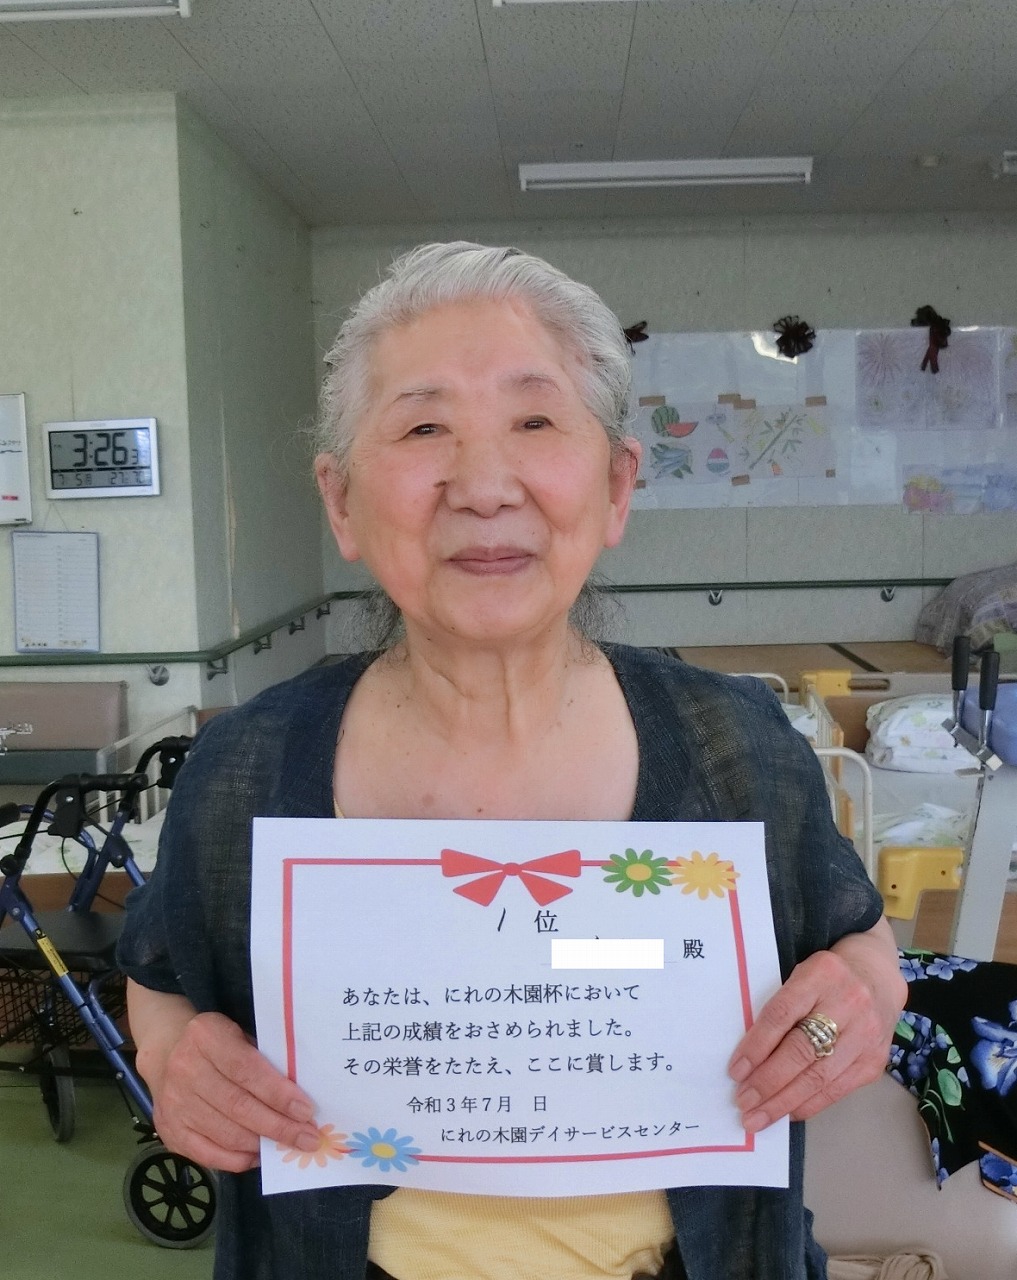 3:26
7 5
1 位
殿
あなたは、にれの木園杯において
上記の成績をおさめられました。
その栄誉をたたえ、ここに賞します。
令和3年7月　日
にれの木園デイサービスセンター